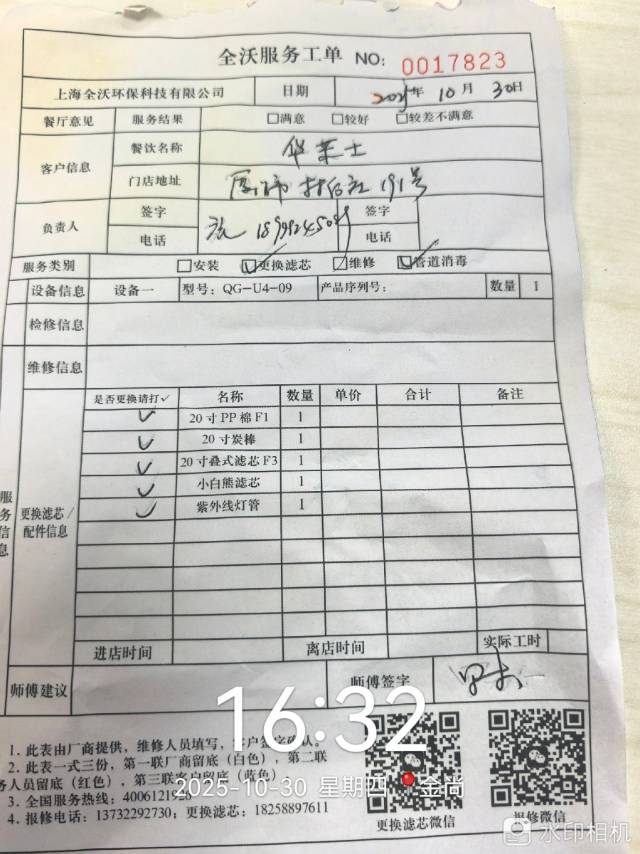 全沃服务工单 NO: 0017823
上海全沃环保科技有限公司 日期 2025年 10月 30日
餐厅意见 服务结果 □满意 □较好 □较差不满意
客户信息 餐饮名称 华莱士
门店地址 191号
负责人 签字 签字
电话 电话
服务类别 □安装 ☑更换滤芯 □维修 ☑管道消毒
设备信息 设备一 型号: QG-U4-09 产品序列号: 数量 1
检修信息
维修信息
服务信息
更换滤芯/配件信息
是否更换请打✓ 名称 数量 单价 合计 备注
✓ 20寸PP棉F1 1
✓ 20寸炭棒 1
✓ 20寸叠式滤芯F3 1
✓ 小白熊滤芯 1
✓ 紫外线灯管 1
进店时间 离店时间 实际工时
师傅建议 师傅签字
16:32
1. 此表由厂商提供，维修人员填写，客户签字确认。
2. 此表一式三份，第一联厂商留底（白色），第二联
务人员留底（红色），第三联客户留底（蓝色）
3. 全国服务热线: 4006121
4. 报修电话: 13732292730; 更换滤芯: 18258897611
2025-10-30 星期四 金尚
更换滤芯微信 报修微信
水印相机